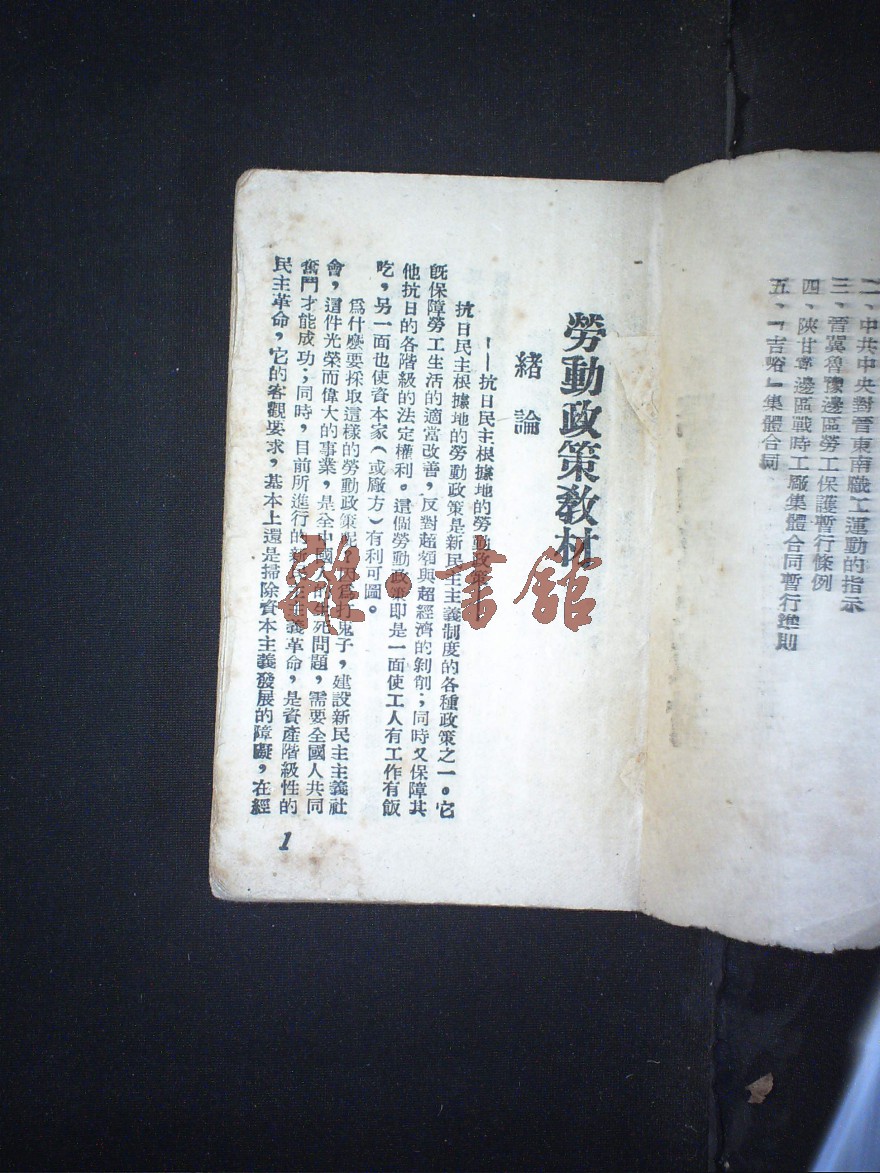 二、中共中央對晉東南職工運動的指示
三、晉冀魯豫邊區勞工保護暫行條例
四、陝甘寧邊區戰時工廠集體合同暫行準則
五、「吉峪」集體合同
勞動政策教材
緒論
——抗日民主根據地的勞動政策——
抗日民主根據地的勞動政策是新民主主義制度的各種政策之一。它
旣保障勞工生活的適當改善，反對超額與超經濟的剝削；同時又保障其
他抗日的各階級的法定權利。這個勞動政策即是一面使工人有工作有飯
吃，另一面也使資本家（或廠方）有利可圖。
爲什麽要採取這樣的勞動政策呢？因爲打鬼子，建設新民主主義社
會，這件光榮而偉大的事業，是全中國人的生死問題，需要全國人共同
奮鬥才能成功；同時，目前所進行的新民主主義革命，是資產階級性的
民主革命，它的客觀要求，基本上還是掃除資本主義發展的障礙，在經
1
雜·書館